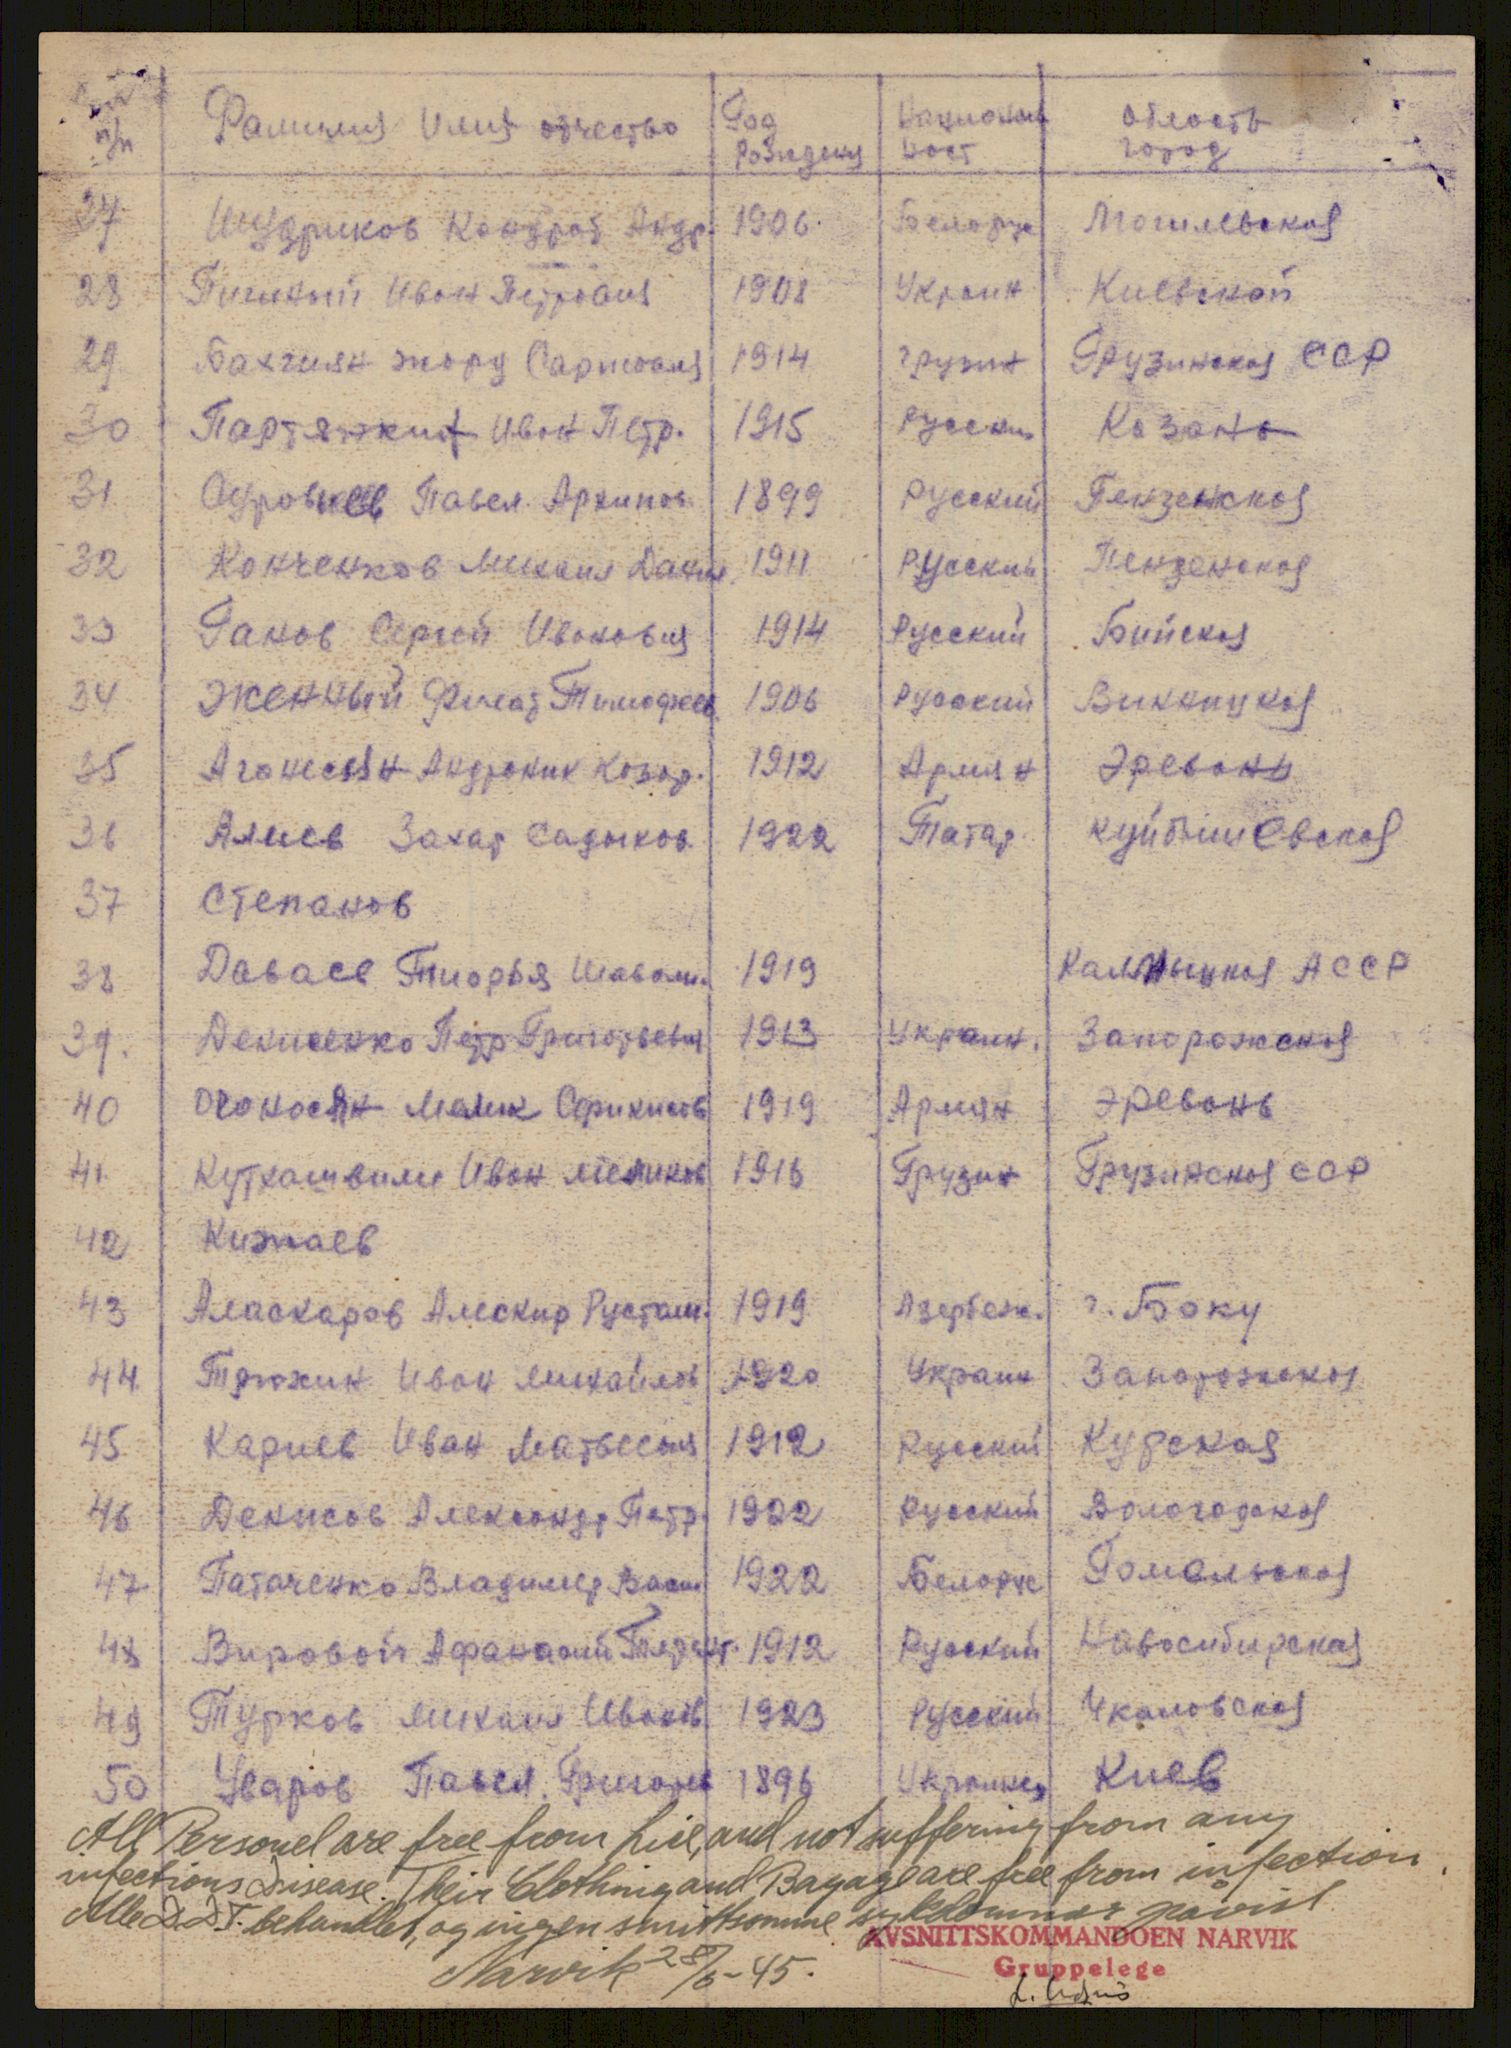 п/п Фамилия Имя отчество Год рождения Националь ност область город
27 Шудриков Кондрат Андр. 1906 Белорус Могилевская
28 Пигиный Иван Петрович 1908 Украин Киевской
29 Бахчиян Жору 1914 грузин Грузинская ССР
30 Партянкин Иван Петр. 1915 Русский Казань
31 Суровцев Павел Архипов 1899 Русский Пензенская
32 Конченков Михаил Данил. 1911 Русский Пензенская
33 Ганов Сергей Иванович 1914 Русский Бийская
34 Женный Тимофеев 1906 Русский Винницкая
35 Аганесян Андроник Казар. 1912 Армян Эревань
36 Алиев Захар Садыков 1922 Татар Куйбышевская
37 Степанов
38 Даваев 1919 Калмыцкая АССР
39. Денисенко Петр Григорьевич 1913 Украин. Запорожская
40 Оганосян Мелик 1919 Армян Эревань
41. Кутхашвили Иван Меликов Грузин Грузинская ССР
42 Кижаев
43 Аласкаров Алескир Рустам. 1919 Азербеж. г. Баку
44 Трюхин Иван Михайлов 1920 Украин Запорожская
45 Кариев Иван Матвеевич 1912 Русский Курская
46 Денисов Александр Петр. 1922 Русский Вологодская
47 Патаченко Владимир Васил 1922 Белорус Гомельская
48 Вировой Афанасий 1912 Русский Новосибирская
49 Турков Михаил Иванов 1923 Русский Чкаловская
50 Уваров Павел Григорев 1896 Украинец Киев
All Personel are free from lice, and not suffering from any
infectious Disease. Their Clothing and Bagage are free from infection.
Alle D.D.T. behandlet, og ingen smittsomme sykdommer påvist
AVSNITTSKOMMANDOEN NARVIK
Narvik 28/6-45.
Gruppelege